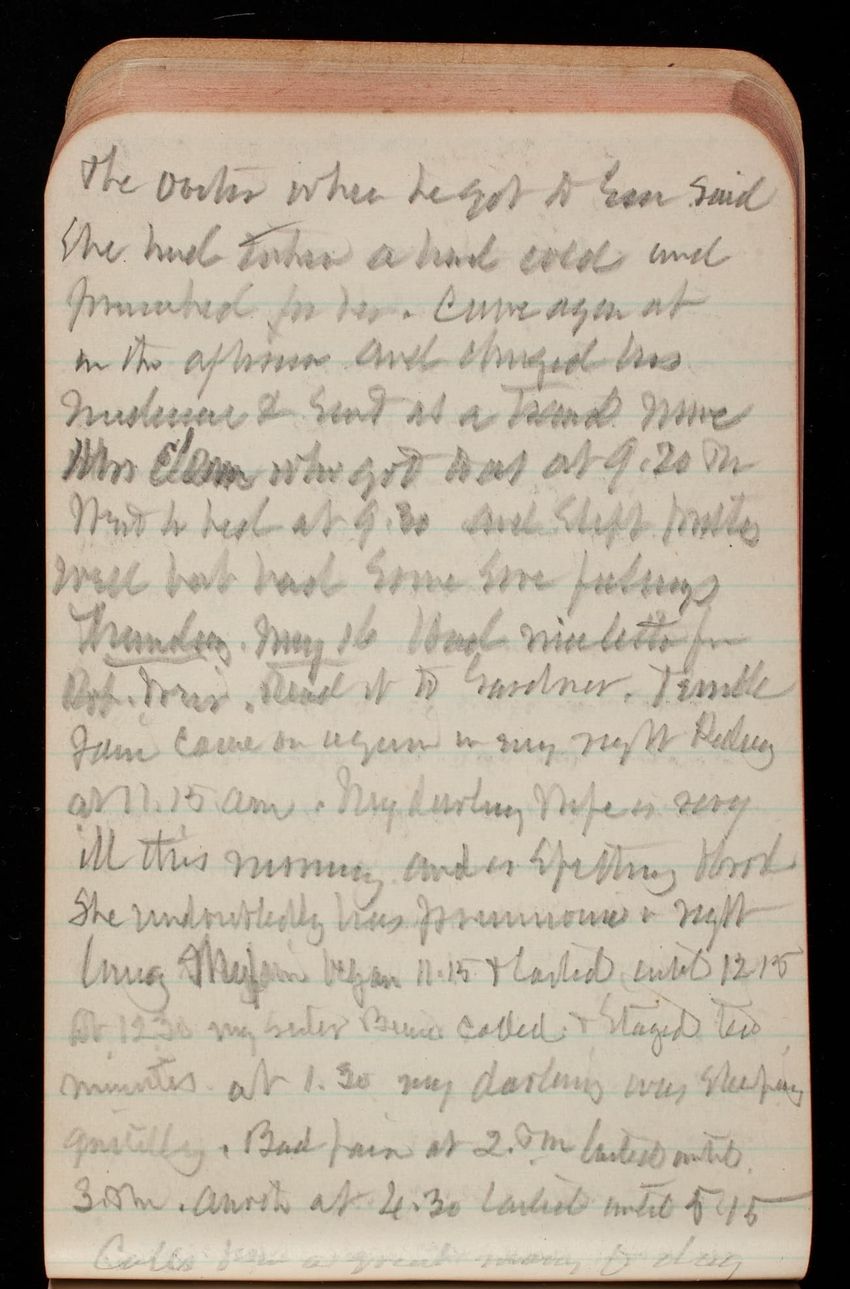 The Doctor when he got to Em said
she had taken a bad cold and
prescribed for her. Came again at
in the afternoon and changed his
medicine & sent us a trained nurse
Mrs who got out at 9.20 Pm
Went to bed at 9.30 and slept pretty
well but had some sore feelings
Thursday. May 16 Had nice letter from
Rob. Read it to Gardner. Terrible
Pain came on again in my right Kidney
at 11.15 am. My darling Wife is very
ill this morning and is spitting blood
She undoubtedly has pneumonia right
lung My pain began 11.15 & lasted until 12 15
At 12 30 my sister called & stayed ten
minutes. at 1.30 my darling was sleeping
quietly. Bad pain at 2. Pm lasted until
3 Pm. Another at 4.30 lasted until 5 15
Calls from a great many to day